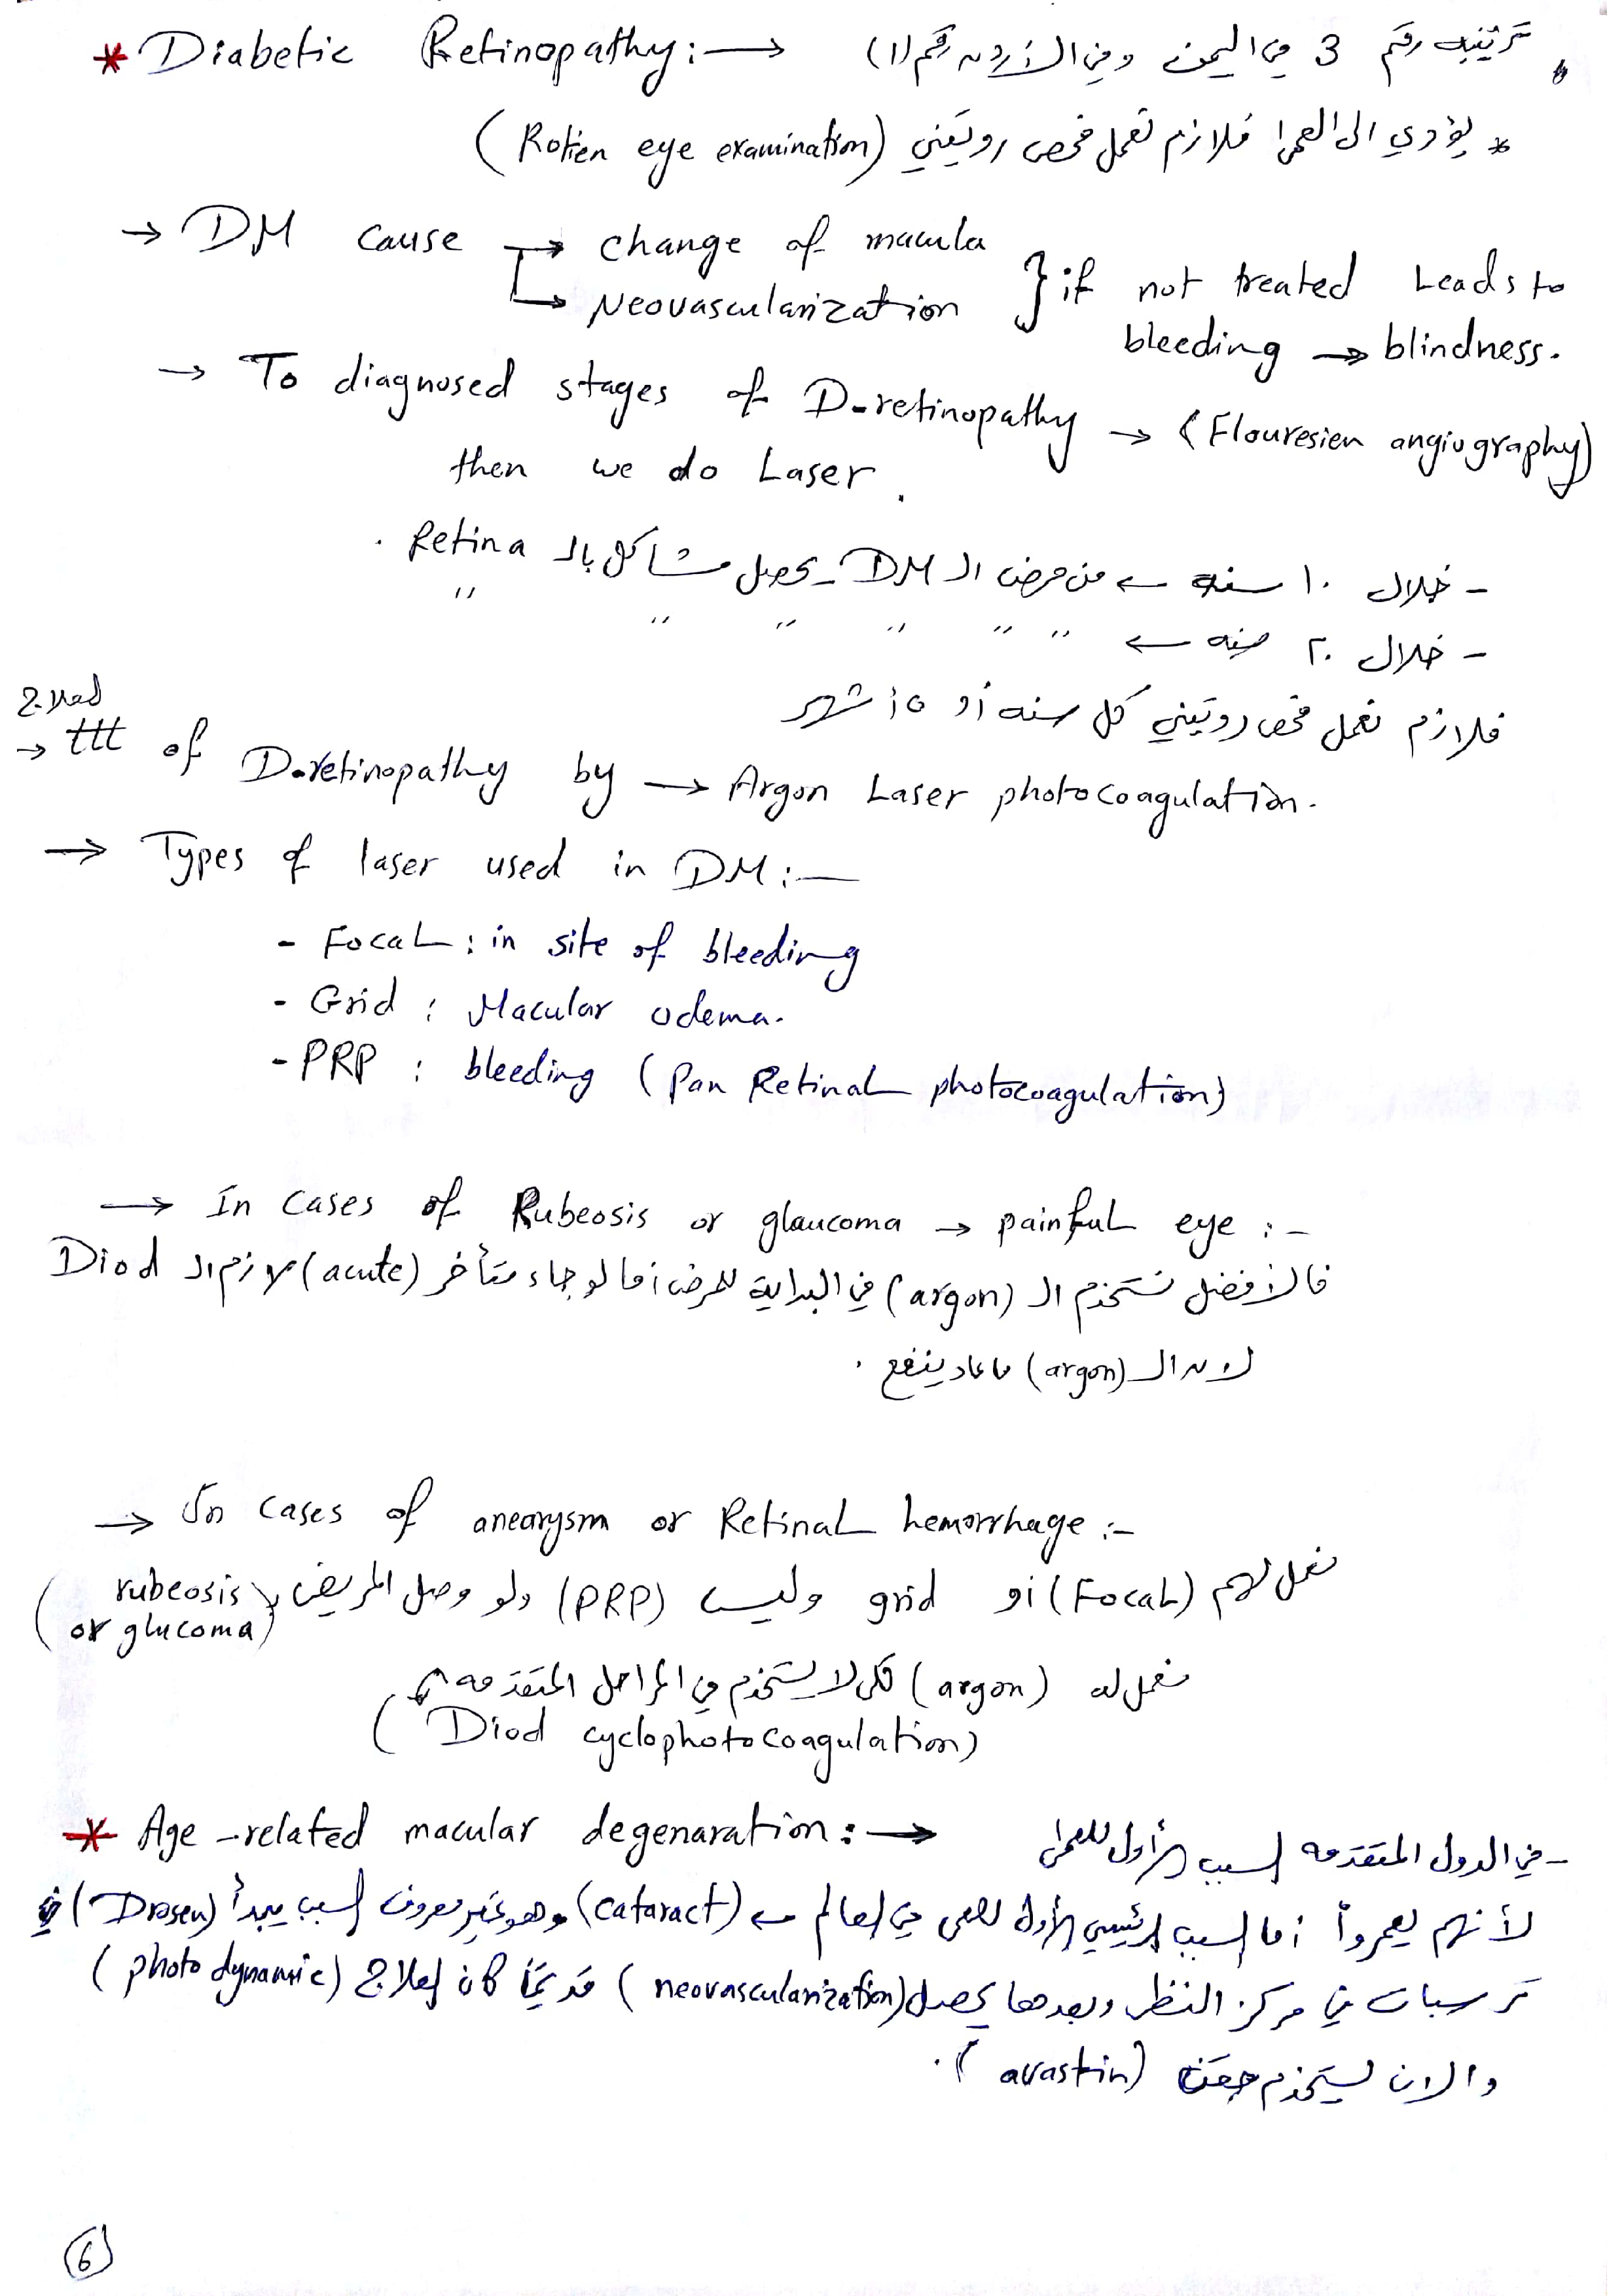 * Diabetic Retinopathy :→ ترتيبه رقم 3 في اليمن وفي الأردن رقم (1)
* يؤدي الى العمى فلازم نعمل فحص روتيني (Rotien eye examination)
→ DM cause → change of macula
↳ Neovascularization } if not treated Leads to
bleeding → blindness.
→ To diagnosed stages of D-retinopathy → (Flouresien angiography)
then we do Laser.
- خلال ١٠ سنه ← من مرض الـ DM يحصل مشاكل بالـ Retina .
- خلال ٢٠ سنه ← " " " " " "
فلازم نعمل فحص روتيني كل سنه أو ١٥ شهر
العلاج
→ ttt of D-retinopathy by → Argon Laser photocoagulation.
→ Types of laser used in DM :—
- Focal : in site of bleeding
- Grid : Macular odema.
- PRP : bleeding (Pan Retinal photocoagulation)
→ In Cases of Rubeosis or glaucoma → painful eye :-
فالأفضل نستخدم الـ (argon) في البداية للمرض أما لو جاء متأخر (acute) لازم الـ Diod
لان الـ (argon) ما عاد ينفع .
→ In Cases of anearysm or Retinal hemorrhage :-
نعمل لهم (Focal) أو grid وليس (PRP) ولو وصل المريض لـ (rubeosis
or glucoma)
نعمل له (argon) لكن لا يستخدم في المراحل المتقدمه
(Diod cyclophotocoagulation)
* Age -related macular degenaration :→ - في الدول المتقدمه السبب الأول للعمى
لأنهم يعمروا أما السبب الرئيسي الأول للعمى في العالم ← (cataract) وهو غير معروف السبب يبدأ (Drosen) في
ترسبات في مركز النظر وبعدها يحصل (neovascularization) قديمًا كان العلاج (photo dynamic)
والان يستخدم حقن (avastin) .
6